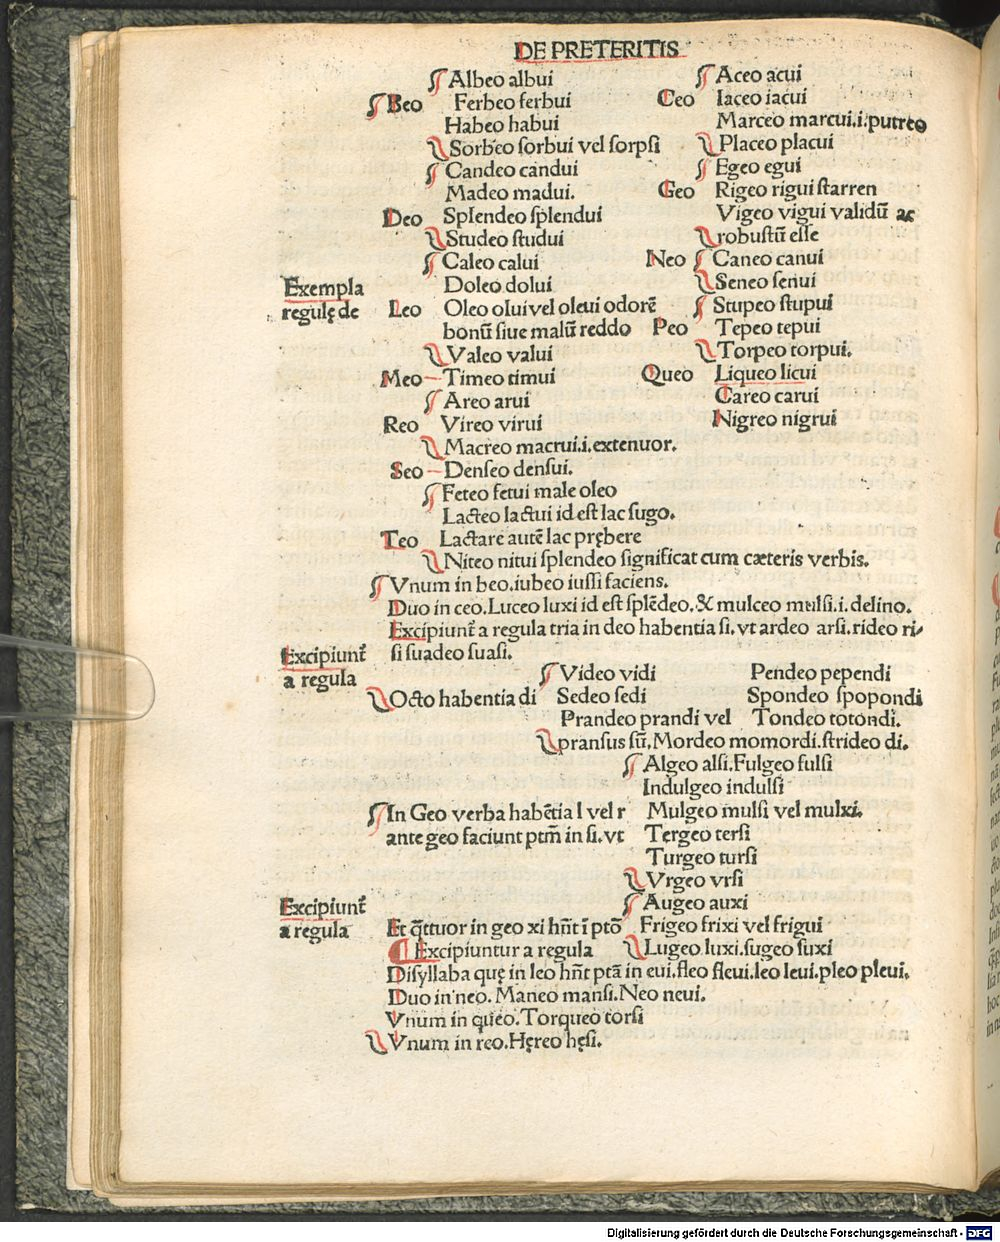 DE PRETERITIS
Albeo albui
Beo Ferbeo ferbui
Habeo habui
Sorbeo sorbui vel sorpsi
Candeo candui
Madeo madui.
Deo Splendeo splendui
Studeo studui
Caleo calui
Exempla
regulę de
Doleo dolui
Leo Oleo olui vel oleui odorē
bonū siue malū reddo
Valeo valui
Meo Timeo timui
Areo arui
Reo Vireo virui
Macreo macrui.i.extenuor.
Seo Denseo densui.
Feteo fetui male oleo
Lacteo lactui id est lac sugo.
Teo Lactare autē lac prębere
Niteo nitui splendeo significat cum cæteris verbis.
Aceo acui
Ceo Iaceo iacui
Marceo marcui.i.putreo
Placeo placui
Egeo egui
Geo Rigeo rigui starren
Vigeo vigui validū ac
robustū esse
Neo Caneo canui
Seneo senui
Stupeo stupui
Peo Tepeo tepui
Torpeo torpui.
Queo Liqueo licui
Careo carui
Nigreo nigrui
Vnum in beo.iubeo iussi faciens.
Duo in ceo.Luceo luxi id est splēdeo.& mulceo mulsi.i.delino.
Excipiunt̄ a regula tria in deo habentia si.vt ardeo arsi.rideo ri
si suadeo suasi.
Excipiunt̄
a regula
Octo habentia di
Video vidi
Sedeo sedi
Prandeo prandi vel
pransus sū.Mordeo momordi.strideo di.
Pendeo pependi
Spondeo spopondi
Tondeo totondi.
In Geo verba habētia l vel r
ante geo faciunt ptm̄ in si.vt
Algeo alsi.Fulgeo fulsi
Indulgeo indulsi
Mulgeo mulsi vel mulxi.
Tergeo tersi
Turgeo tursi
Vrgeo vrsi
Excipiunt̄
a regula
Et q̄ttuor in geo xi hn̄t ī ptō
Augeo auxi
Frigeo frixi vel frigui
Lugeo luxi.sugeo suxi
Excipiuntur a regula
Disyllaba quę in leo hn̄t ptā in eui.fleo fleui.leo leui.pleo pleui.
Duo in neo. Maneo mansi.Neo neui.
Vnum in queo.Torqueo torsi
Vnum in reo.Hęreo hęsi.
Digitalisierung gefördert durch die Deutsche Forschungsgemeinschaft - DFG